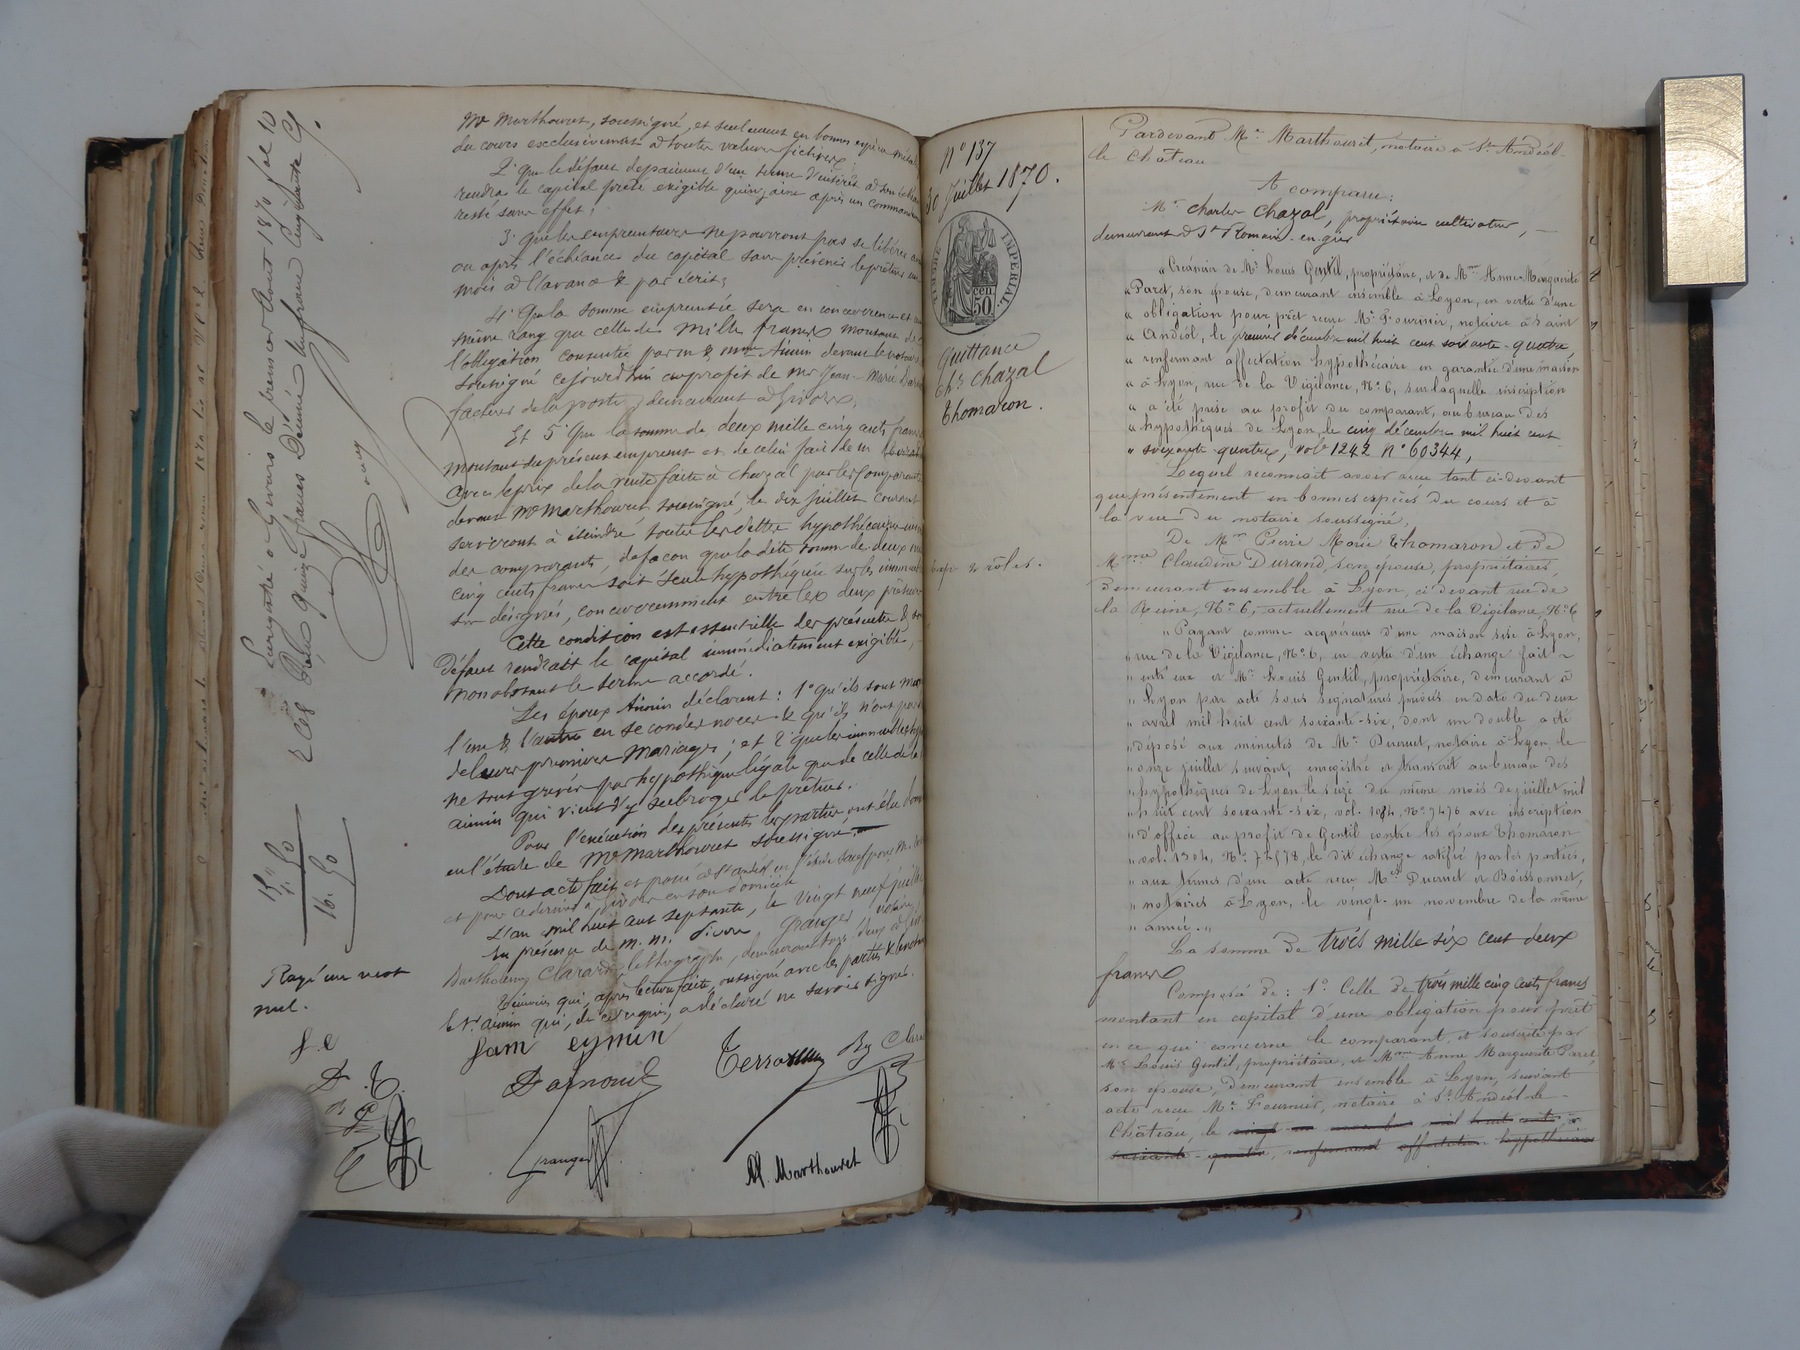 Me Marthouret, soussigné, et seulement en bonnes espèces
du cours exclusivement à toutes valeurs fictives;
2° que le défaut de paiement d'un terme d'intérêt à son échéance
rendra le capital prêté exigible quinzaine après un commandement
resté sans effet;
3° que les emprunteurs ne pourront pas se libérer
ou après l'échéance du capital sans prévenir le prêteur un
mois à l'avance & par écrit;
4° Que la somme empruntée sera en concurrence et
même rang que celle de mille francs montant de
l'obligation consentie par m. & mme Aimin devant le notaire
soussigné cejourd'hui au profit de mr Jean-Marie
facteur de la poste, demeurant à Givors,
Et 5° Que la somme de deux mille cinq cents francs
montant du présent emprunt et de celui fait de m
avec le prix de la vente faite à Chazal par les comparants
devant Me Marthouret soussigné, le dix juillet courant
serviront à éteindre toutes les dettes hypothécaires
des comparants, de façon que la dite somme de deux mille
cinq cents francs soit seule hypothéquée sur les immeubles
sus désignés, concurremment entre les deux prêteurs
Cette condition est essentielle des présentes & son
défaut rendrait le capital immédiatement exigible,
nonobstant le terme accordé.
Les époux Aimin déclarent: 1° qu'ils sont mariés
l'un & l'autre en secondes noces & qu'ils n'ont pas
de leurs premiers mariages; et 2° que les immeubles
ne sont grevés par hypothèque légale que de celle de la
aimin qui vient d'y subroger le prêteur.
Pour l'exécution des présentes les parties ont élu
en l'étude de Me Marthouret soussigné
Dont acte fait et passé à St Andéol en l'étude sauf pour
et pour ce dernier à Givors en son domicile
L'an mil huit cent septante, le vingt neuf juillet
En présence de m. m. Granger,
Barthélemy Clarard, lithographe, demeurant tous deux à
témoins qui, après lecture faite, ont signé avec les parties &
le Sr aimin qui, de ce requis, a déclaré ne savoir signer.
fam eymin
By Clara
Granger
M. Marthouret
Enregistré à Givors le premier Aout 1870 fol 10
Reçu quinze francs Décime deux francs cinquante
15 "
1. 50
16. 50
Rayé un mot
nul.
f.e
N° 137
30 Juillet 1870.
TIMBRE IMPÉRIAL.
50 cen
Quittance
Ch. Chazal
Thomaron.
2 rôles.
Pardevant Me Marthouret, notaire à St Andéol-
le Château
A comparu:
Mr Charles Chazal, propriétaire cultivateur,
demeurant à St Romain-en-gier
" Créancier de Mr Louis Gentil, propriétaire, et de Mme Anne-Marguerite
" Paret, son épouse, demeurant ensemble à Lyon, en vertu d'une
" obligation pour prêt reçue Me Fournier, notaire à Saint
" Andéol, le premier décembre mil huit cent soixante-quatre,
" renfermant affectation hypothécaire en garantie d'une maison
" à Lyon, rue de la Vigilance, N° 6, sur laquelle inscription
" a été prise au profit du comparant, au bureau des
" hypothèques de Lyon, le cinq décembre mil huit cent
" soixante quatre, vol. 1242 N° 60344,
Lequel reconnait avoir reçu tant ci-devant
que présentement en bonnes espèces du cours et à
la vue du notaire soussigné,
De Mr Pierre Marie Thomaron et de
Mme Claudine Durand, son épouse, propriétaires,
demeurant ensemble à Lyon, ci devant rue de
la Reine, N° 6, actuellement rue de la Vigilance, N° 6
" Payant comme acquéreurs d'une maison sise à Lyon,
" rue de la Vigilance, N° 6, en vertu d'un échange fait
" entr'eux et Mr Louis Gentil, propriétaire, demeurant à
" Lyon par acte sous signatures privées en date du deux
" avril mil huit cent soixante-six, dont un double a été
" déposé aux minutes de Me Ducruet, notaire à Lyon, le
" onze juillet suivant, enregistré et transcrit au bureau des
" hypothèques de Lyon le seize du même mois de juillet mil
" huit cent soixante-six, vol. 1084, N° 7476 avec inscription
" d'office au profit de Gentil contre les époux Thomaron
" vol. 1304, N° 74578, le dit échange ratifié par les parties,
" aux termes d'un acte reçu Mes Ducruet et Boissonnet,
" notaires à Lyon, le vingt-un novembre de la même
" année. "
La somme de trois mille six cent deux
francs
Composé de: 1° Celle de trois mille cinq cents francs
montant en capital d'une obligation pour prêt
en ce qui concerne le comparant, et souscrite par
Mr Louis Gentil, propriétaire, et Mme Anne Marguerite Paret,
son épouse, demeurant ensemble à Lyon, suivant
acte reçu Me Fournier, notaire à St Andéol-le-
Château, le vingt un novembre mil huit cent
soixante-quatre, renfermant affectation hypothécaire